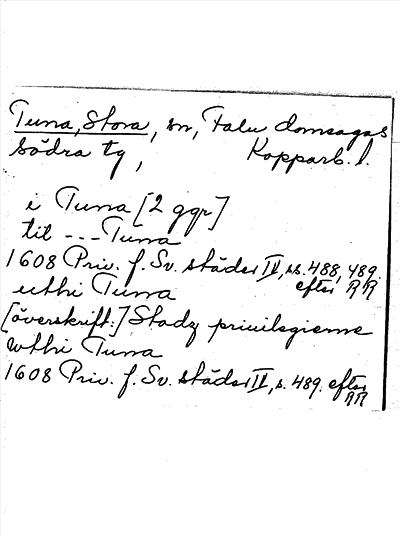 Tuna, Stora, sn, Falu domsagas
södra tg, Kopparb. l.
i Tuna [2 ggr]
tit --- Tuna
1608 Priv. f. Sv. städer II, ss. 488, 489.
efter RR
uthi Tuna
[överskrift:] Stadz priuilegierne
wthi Tuna
1608 Priv. f. Sv. städer II, s. 489. efter
RR